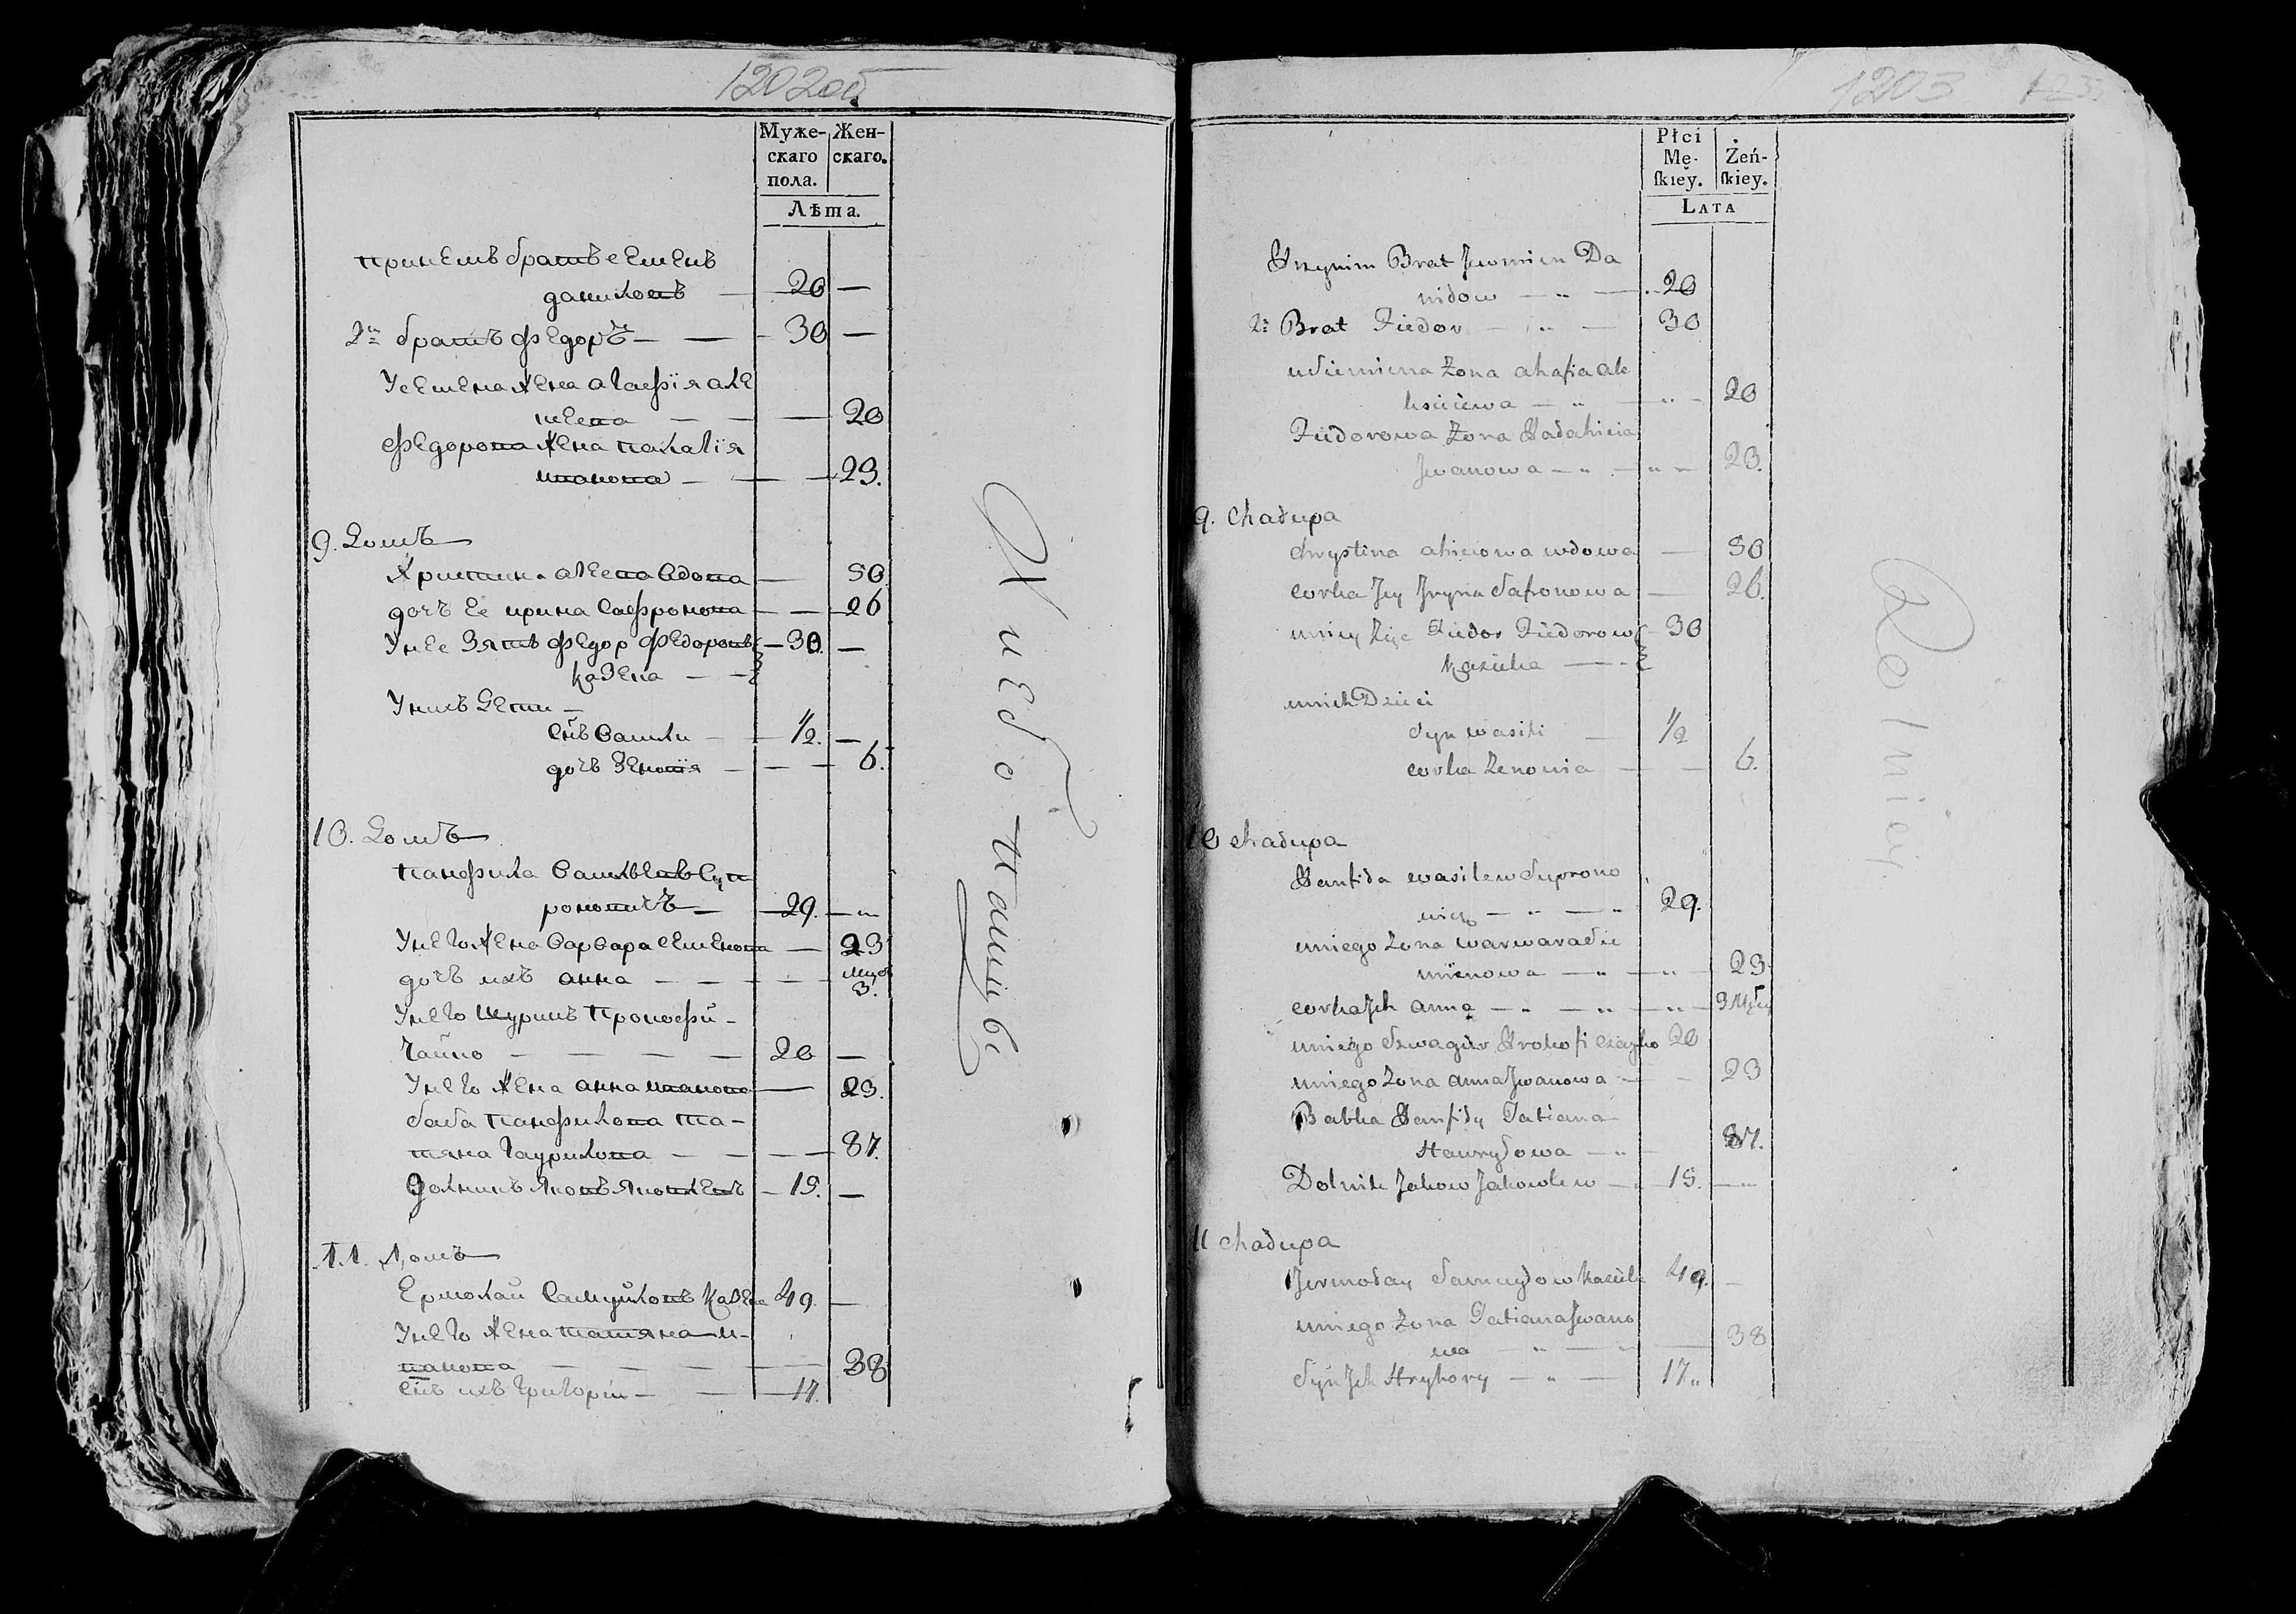 1202об
Муже-
скаго
пола.
Жен-
скаго.
Лѣта.
принемъ братъ семенъ
даниловъ — 20 —
2й братъ федоръ — — 30 —
Усемена жена агафїя але
— — — 20
федорова жена палагїя
иванова — — — 23.
9. Домъ
Христина вдова — 50
дочъ ее ирина Сафронова — — 26
Унее зятъ федор федоровъ — 30. —
казека — —
Унихъ Дети —
снъ Васили — — 1/2. —
дочъ Зеновїя — — — 6.
10. Домъ
панфила Василевъ Суп
роновичъ — 29. —
Унего жена варвара семенова — 23
дочъ ихъ анна — — — — 3.
Унего шуринъ прокофий
— — — — 20 —
Унего жена анна иванова — 23.
баба панфилова та-
тяна гаурилова — — — — 87.
Долникъ яковъ яковлевъ — 15. —
11. Домъ
Ермолай Самуйловъ казека 49. —
Унего жена татяна и-
ванова — — — — 38
снъ ихъ григорїи — — 17.
Хлебо-пашцы
1203
Płci
Mę-
ſkiey.
Żeń-
ſkiey.
Lata
Przynim Brat Siemien Da
niłow — „ — 20
2i Brat Fiedor — „ — 30
uSiemiena Zona ahafia ale
— „ — „ — 20
Fiedorowa Zona Pałahieia
Jwanowa — „ — „ — 23.
9. Chałupa
Chrystina wdowa — 50
corka Jey Jryna Safronowa — 26.
uniey Zięc Fiedor Fiedorow — 30
Kazieka — —
unich Dzieci
Syn wasili — 1/2
corka Zenowia — — 6.
10 Chałupa
Panfiła wasilew Suprono
wicz — „ — „ 29.
uniego Zona warwara Sie
mienowa — „ — „ — 23.
corka Jch anna — „ — „ — „ — 3
uniego Szwagier Prokofi 20
uniego Zona anna Jwanowa — — 23
Babka Panfiły Tatiana
Hawryłowa — „ — 87.
Dolnik Jakow Jakowlew — 15. — „
11 Chałupa
Jermołay Samuyłow Kazieka 49. —
uniego Zona Tatiana Jwano
wa — „ — — 38
Syn Jch Hryhory — „ — 17„
Rolnicy